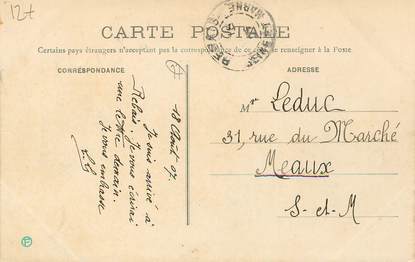 12+
CARTE POSTALE
Certains pays étrangers n'acceptant pas la correspondance de ce côté, se renseigner à la Poste
CORRESPONDANCE
18 Août 07.
Je suis arrivé à
Rebais. Je vous écrirai
une lettre demain.
Je vous embrasse
L. G
ADRESSE
Mr Leduc
31, rue du Marché
Meaux
S-et-M
REBAIS
SEINE-ET-MARNE